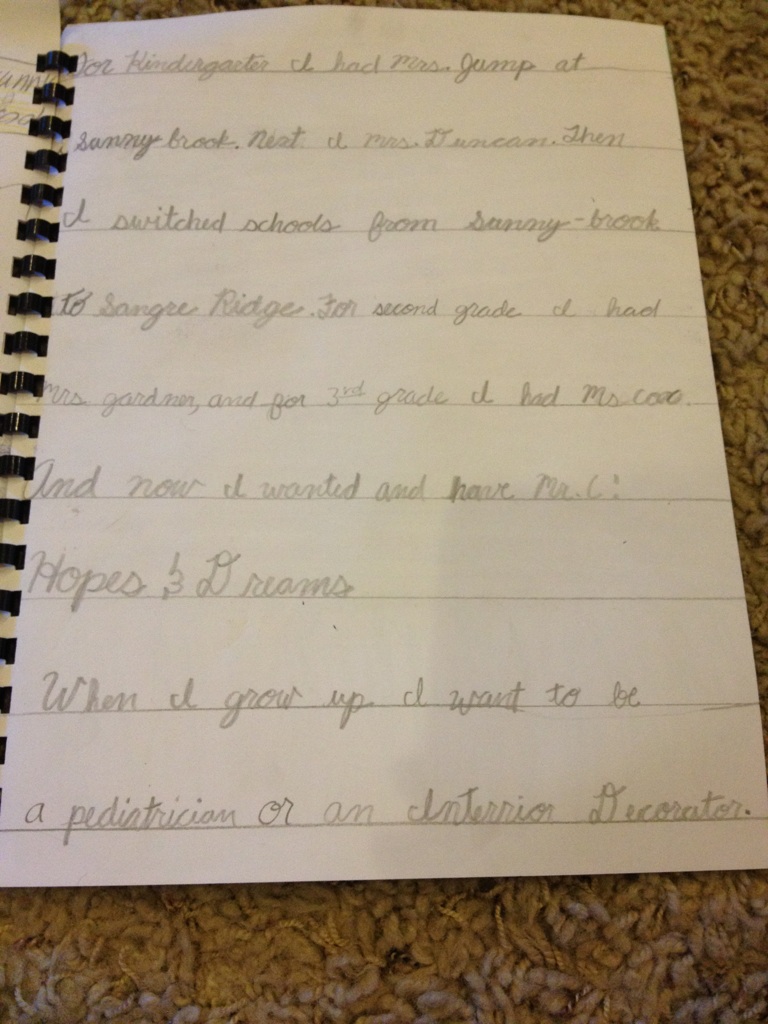 For Kindergarter I had Mrs. Jump at
Sunny-brook. Next I mrs. Duncan. Then
I switched schools from Sunny-brook
to Sangre Ridge. For second grade I had
Mrs gardner, and for 3rd grade I had Ms coxo.
And now I wanted and have Mr. C!
Hopes & Dreams
When I grow up I want to be
a pediatrician or an Interrior Decorator.